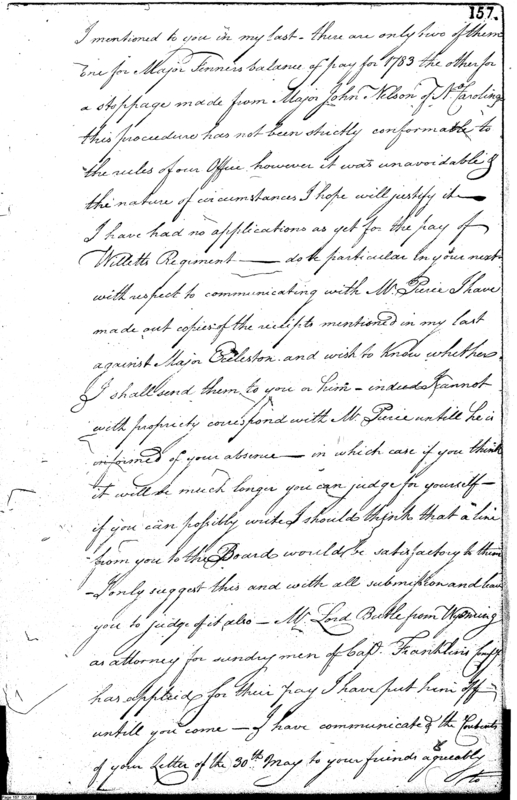 157.
I mentioned to you in my last - there are only two of them
One for Major Fenners balance of pay for 1783 the other for
a stoppage made from Major John Nelson of No Carolina
this proceedure has not been strictly conformable to
the rules of our Office however it was unavoidable &
the nature of circumstances I hope will justify it —
I have had no applications as yet for the pay of
Willetts Regiment — do be particular in your next
with respect to communicating with Mr. Pierce I have
made out copies of the receipts mentioned in my last
against Major Eccleston and wish to know whether
I shall send them to you or him - indeed I cannot
with propriety correspond with Mr. Pierce untill he is
informed of your absence — in which case if you think
it will be much longer you can judge for yourself —
if you can possibly write I should think that a line
from you to the Board would be satisfactory to them
- I only suggest this and with all submission and leave
you to judge of it also — Mr. Lord Butle from Wyoming
as attorney for sundry men of Capt. Franklins Compy.
has applied for their pay I have put him off
untill you come — I have communicated the Contents
of your Letter of the 30th May to your friends agreeably
to